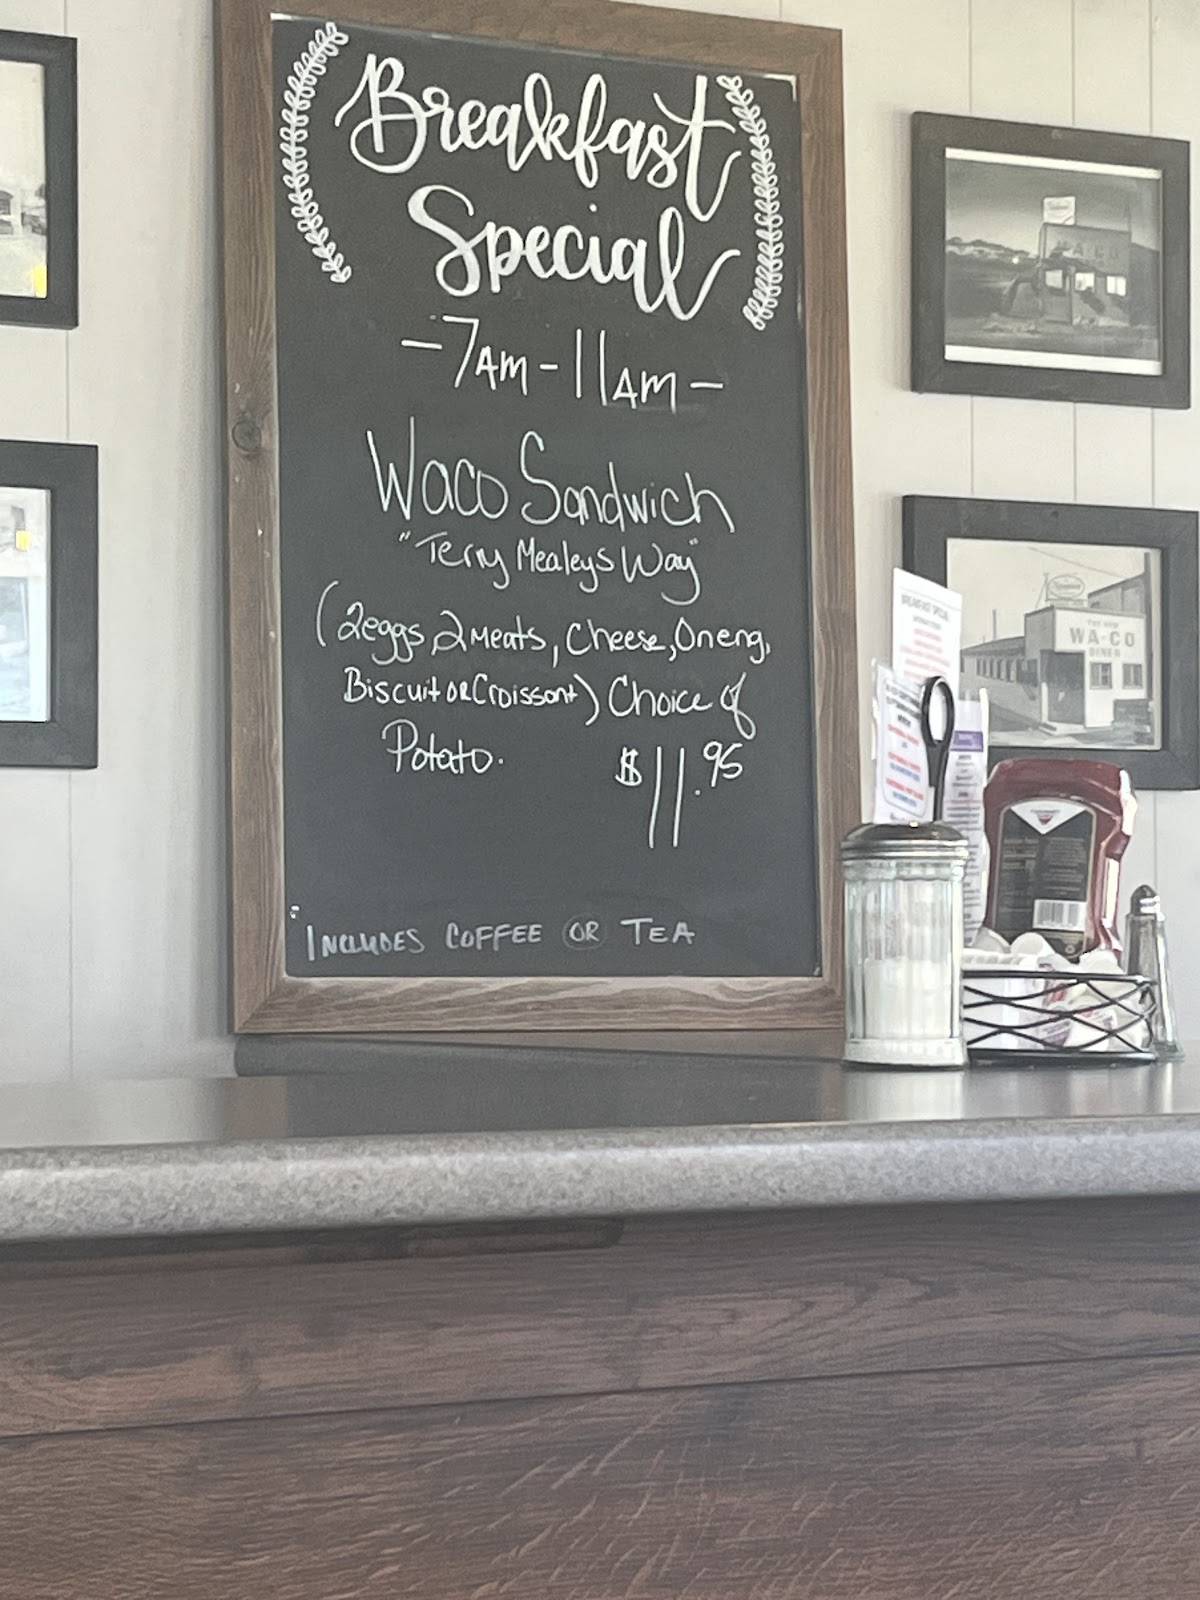 Breakfast
Special
-7AM-11AM-
Waco Sandwich
"Terry Mealeys Way"
(2eggs, 2 Meats, Cheese, On eng,
Biscuit OR Croissant) Choice of
Potato.
$11.95
INCLUDES COFFEE OR TEA
WACO
BREAKFAST SPECIAL
THE NEW
WA-CO
DINER